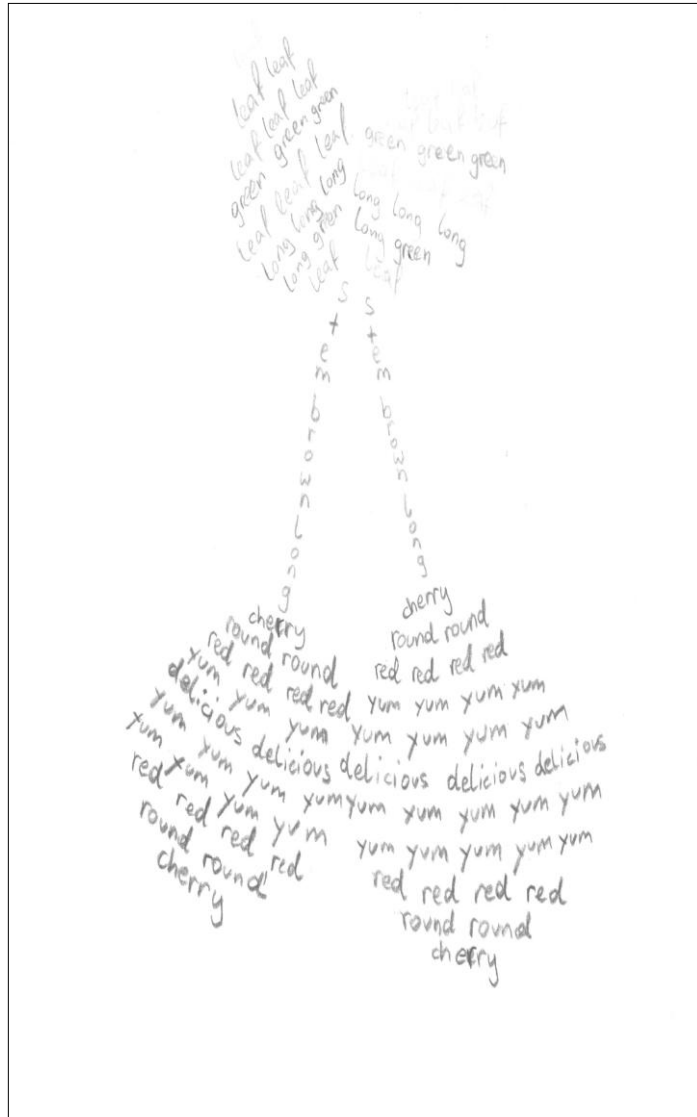 leaf leaf
leaf leaf leaf
green green green
leaf leaf leaf
long long long
long green
leaf
leaf leaf
leaf leaf leaf
green green green
leaf leaf leaf
long long long
long green
leaf
stem brown long
stem brown long
cherry
round round
red red red red
yum yum yum
delicious delicious
yum yum yum yum
yum yum yum yum
red red red red
round round
cherry
cherry
round round
red red red red
yum yum yum yum
yum yum yum yum
delicious delicious delicious
yum yum yum yum yum
yum yum yum yum yum
red red red red
round round
cherry